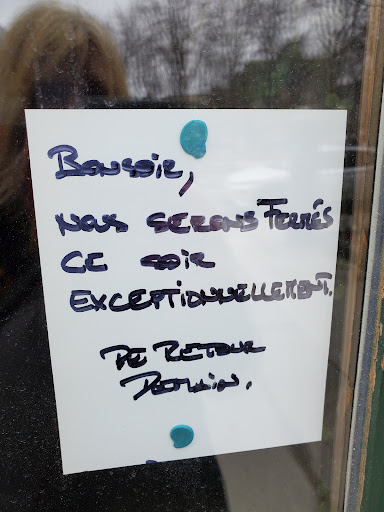 Bonsoir,
nous serons Fermés
ce soir
exceptionnellement.
De Retour
Demain.